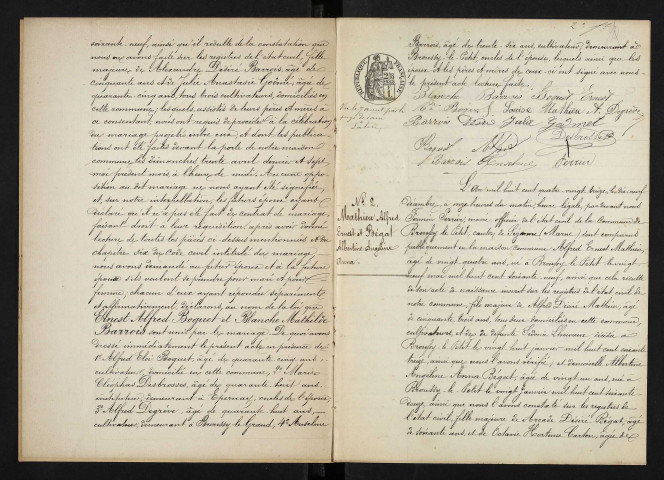 soixante-neuf, ainsi qu'il résulte de la constatation que
nous en avons faite sur les registres de l'état civil, fille
majeure de Alexandre Désiré Barrois, âgé de
cinquante ans et de Julie Anastasie Godin, âgée de
quarante cinq ans, tous trois cultivateurs, domiciliés en
cette commune; lesquels, assistés de leurs pères et mères à
ce consentant, nous ont requis de procéder à la célébration
du mariage projeté entre eux et dont les publica-
tions ont été faites devant la porte de notre maison
commune, les dimanches trente avril dernier et sept
mai présent mois, à l'heure de midi. Aucune oppo-
sition au dit mariage ne nous ayant été signifiée
et, sur notre interpellation, les futurs époux ayant
déclaré qu'il n'a pas été fait de contrat de mariage,
faisant droit à leur réquisition après avoir donné
lecture de toutes les pièces ci-dessus mentionnées et du
chapitre six du code civil intitulé du mariage,
nous avons demandé au futur époux et à la future
épouse s'ils veulent se prendre pour mari et pour
femme; chacun d'eux ayant répondu séparément
et affirmativement, déclarons, au nom de la loi que
Ernest Alfred Boguet et Blanche Mathilde
Barrois sont unis par le mariage. De quoi avons
dressé immédiatement le présent acte en présence de
1° Alfred Eloi Boguet, âgé de quarante-vingt ans
cultivateur, domicilié en cette commune, 2° Marie
Cléophas Desbrosses, âgé de quarante huit ans
instituteur, demeurant à Epernay, oncles de l'époux
3° Alfred Degrève, âgé de quarante huit ans
cultivateur, demeurant à Broussy le Grand, 4° Anselme
Barrois, âgé de trente-six ans, cultivateur, demeurant à
Broussy le Petit, oncles de l'épouse, lesquels ainsi que les
époux et les pères et mères de ceux-ci ont signé avec nous
le présent acte, lecture faite.
Blanche Barrois Boguet Ernest
Louise Mathieu A. Degrève
Barrois Désiré Julie Godin
Desbrosses
Boguet Alfred
Barrois Anselme Perrin
N° 2
Mathieu Alfred
Ernest et Bégat
Albertine Angéline
Anna
L'An mil huit cent quatre vingt treize, le dix neuf
décembre, à onze heures du matin, heure légale, pardevant nous
Firmin Perrin, maire officier de l'état civil de la commune de
Broussy le Petit, canton de Sézanne (Marne) sont comparus
publiquement en la maison commune Alfred Ernest Mathieu,
âgé de vingt quatre ans, né à Broussy le Petit le vingt
neuf mai mil huit cent soixante neuf, ainsi que cela résulte
de son acte de naissance inscrit sur les registres de l'état civil de
notre commune, fils majeur de Alfred Désiré Mathieu, âgé
de cinquante trois ans, tous deux domiciliés en cette commune,
cultivateurs, et de défunte décédée à
Broussy le Petit le vingt huit janvier mil huit cent soixante
treize, ainsi que nous l'avons vérifié; et demoiselle Albertine
Angéline Anna Bégat, âgée de vingt un ans, née à
Broussy le Petit le vingt janvier mil huit cent soixante
douze, ainsi que nous l'avons constaté sur les registres de
l'état civil, fille majeure de Arcade Désiré Bégat, âgé
de soixante ans, et de Octavie Hortense Carton, âgée de